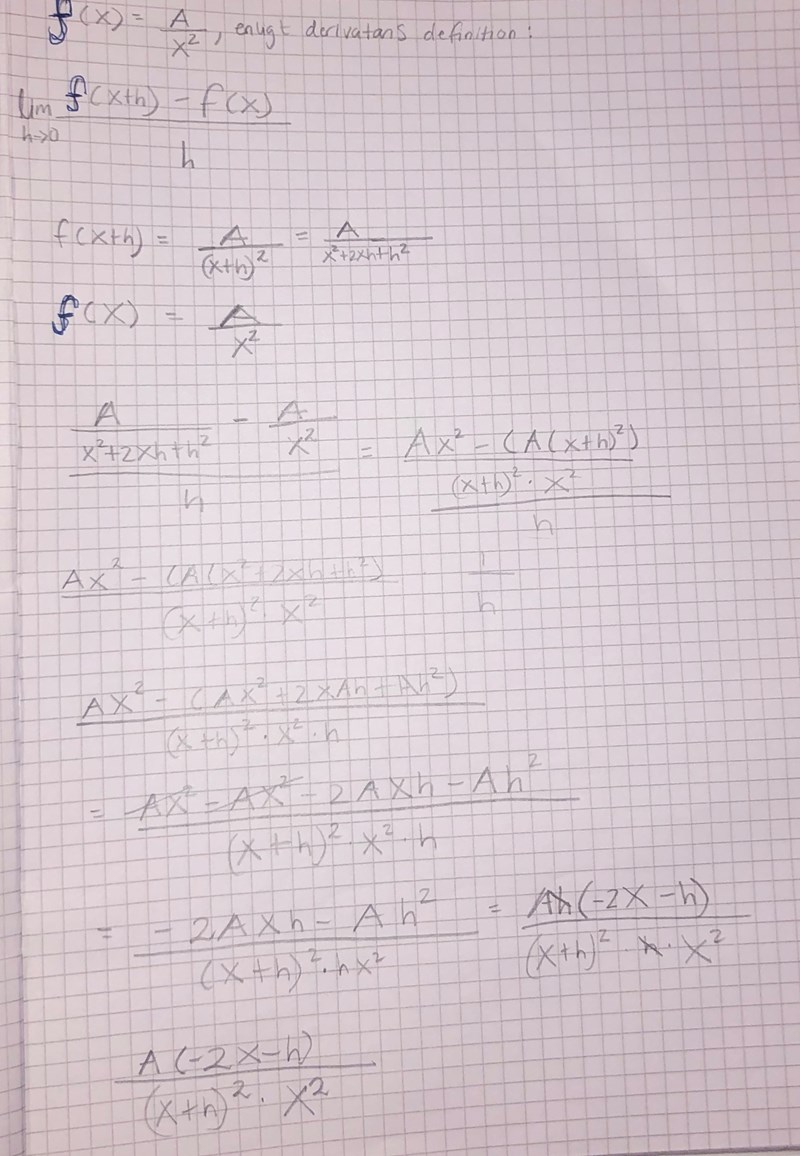 f(x) = A/x², enligt derivatans definition:
lim h→0 (f(x+h) - f(x))/h
f(x+h) = A/(x+h)² = A/(x²+2xh+h²)
f(x) = A/x²
(A/(x²+2xh+h²) - A/x²)/h = ((Ax² - (A(x+h)²))/((x+h)² · x²))/h
(Ax² - (A(x²+2xh+h²))/((x+h)² · x²) 1/h
(Ax² - (Ax²+2xAh+Ah²))/((x+h)² · x² · h)
= (Ax² - Ax² - 2Axh - Ah²)/((x+h)² · x² · h)
= (-2Axh - Ah²)/((x+h)² · hx²) = (Ah(-2x-h))/((x+h)² · h · x²)
(A(-2x-h))/((x+h)² · x²)